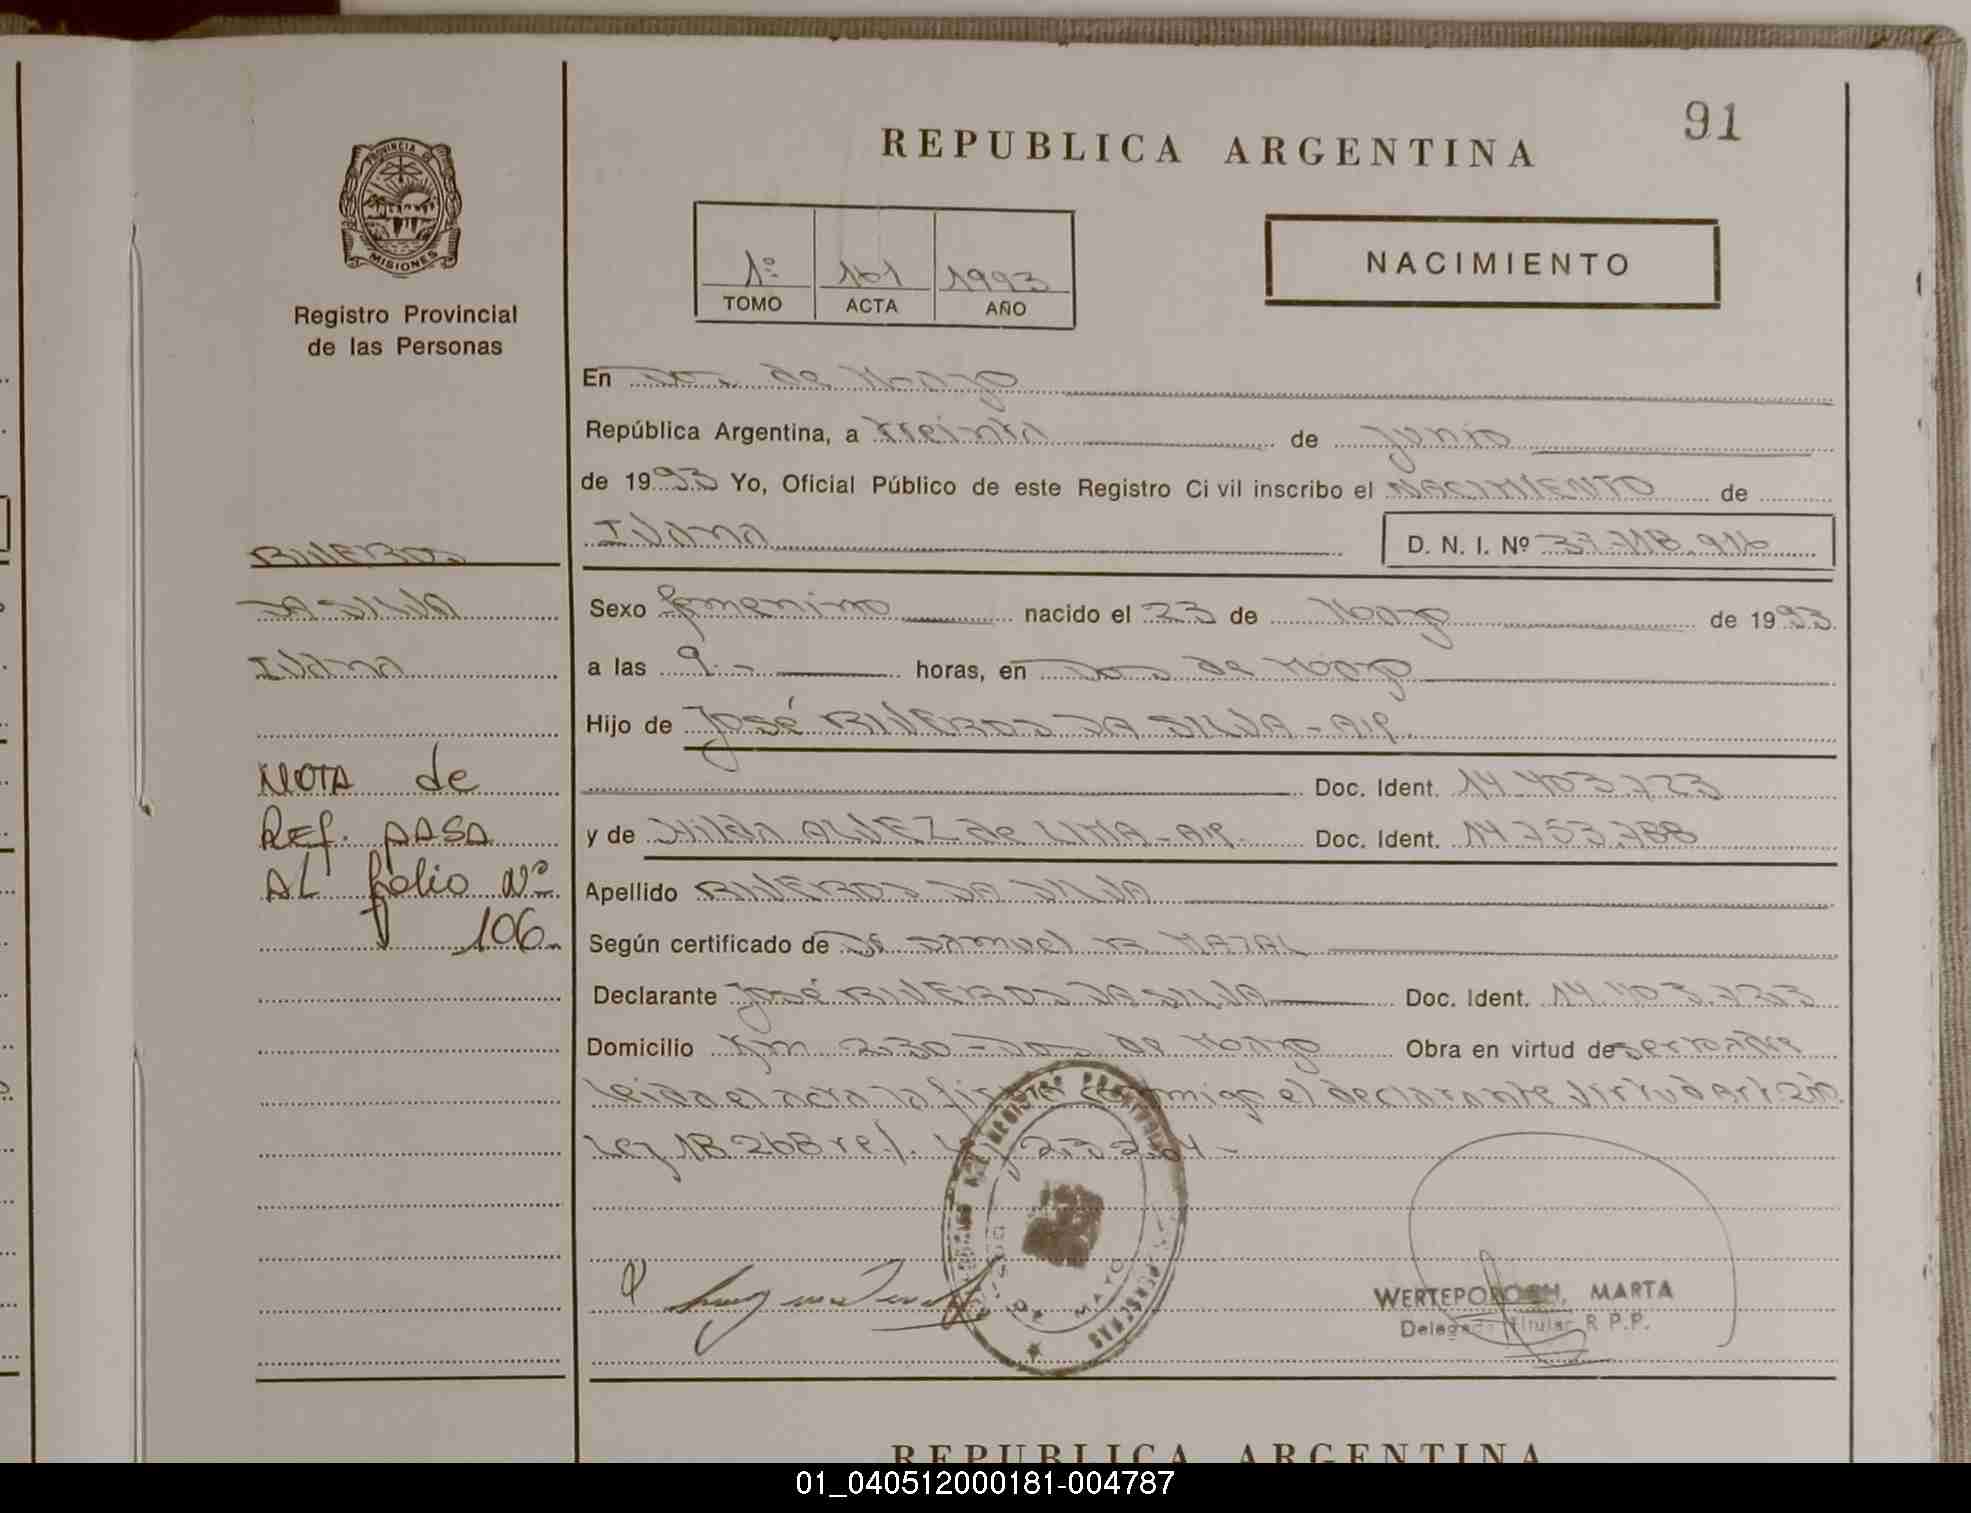 91
REPUBLICA ARGENTINA
PROVINCIA DE
MISIONES
Registro Provincial
de las Personas
1º 161 1993
TOMO ACTA AÑO
NACIMIENTO
En Dos de Mayo
República Argentina, a treinta de junio
de 1993 Yo, Oficial Público de este Registro Civil inscribo el NACIMIENTO de
Ivana D. N. I. Nº 37.718.916
RIVEROS
DA SILVA
Ivana
NOTA de
REf. PASA
AL folio Nº
106
Sexo femenino nacido el 23 de Mayo de 1993
a las 9.- horas, en Dos de Mayo
Hijo de José RIVEROS DA SILVA - Arg.
Doc. Ident. 14.403.723
y de Hilda ALVEZ de LIMA - Arg. Doc. Ident. 14.753.788
Apellido RIVEROS DA SILVA
Según certificado de Dr Samuel
Declarante José RIVEROS DA SILVA Doc. Ident. 14.403.723
Domicilio Km 230 - Dos de Mayo Obra en virtud de ser padre
leída el acta la firma conmigo el declarante virtud Art.
Ley 18268 ref. Ley 23264 -
DOS DE MAYO
WERTEPOROCH, MARTA
Delegada Titular R.P.P.
REPUBLICA ARGENTINA
01_040512000181-004787